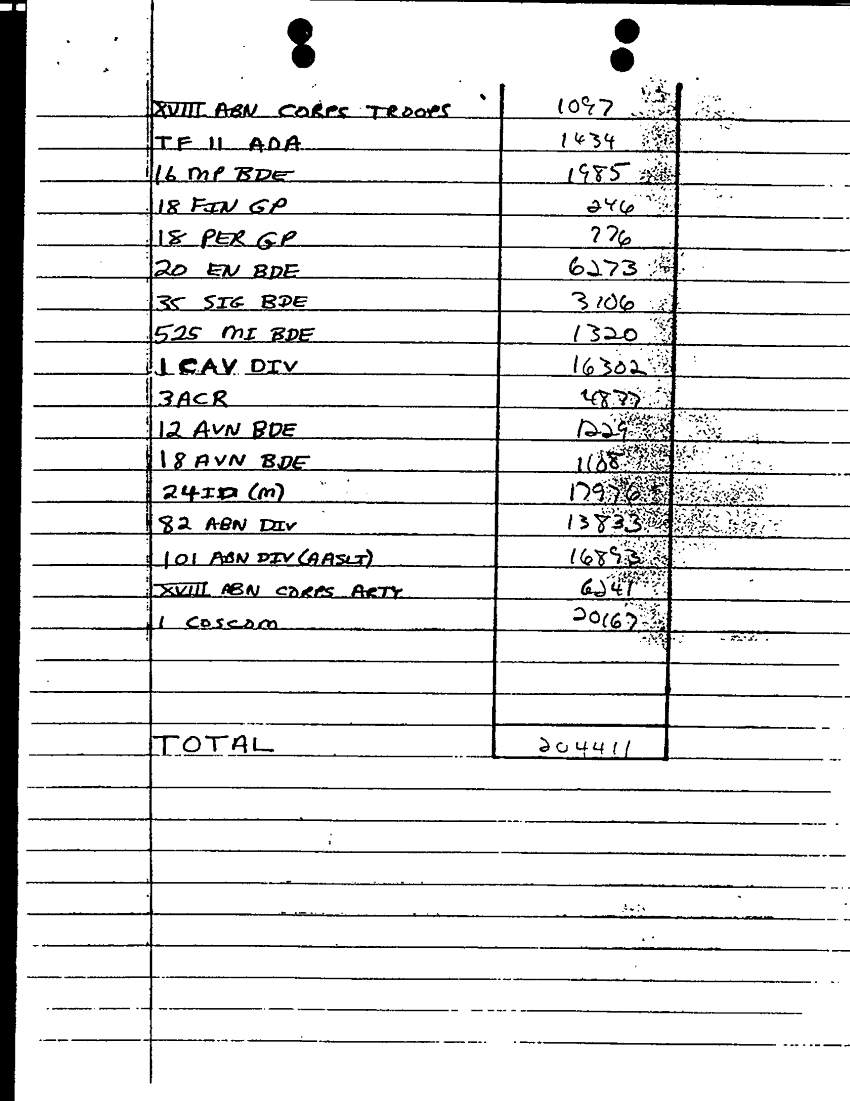 XVIII ABN CORPS TROOPS 1097
TF 11 ADA 1434
16 MP BDE 1985
18 FIN GP 246
18 PER GP 776
20 EN BDE 6273
35 SIG BDE 3106
525 MI BDE 1320
1 CAV DIV 16302
3 ACR 4877
12 AVN BDE 1229
18 AVN BDE 1108
24 ID (M) 17976
82 ABN DIV 13833
101 ABN DIV (AASLT) 16893
XVIII ABN CORPS ARTY 6241
1 COSCOM 20167
TOTAL 204411